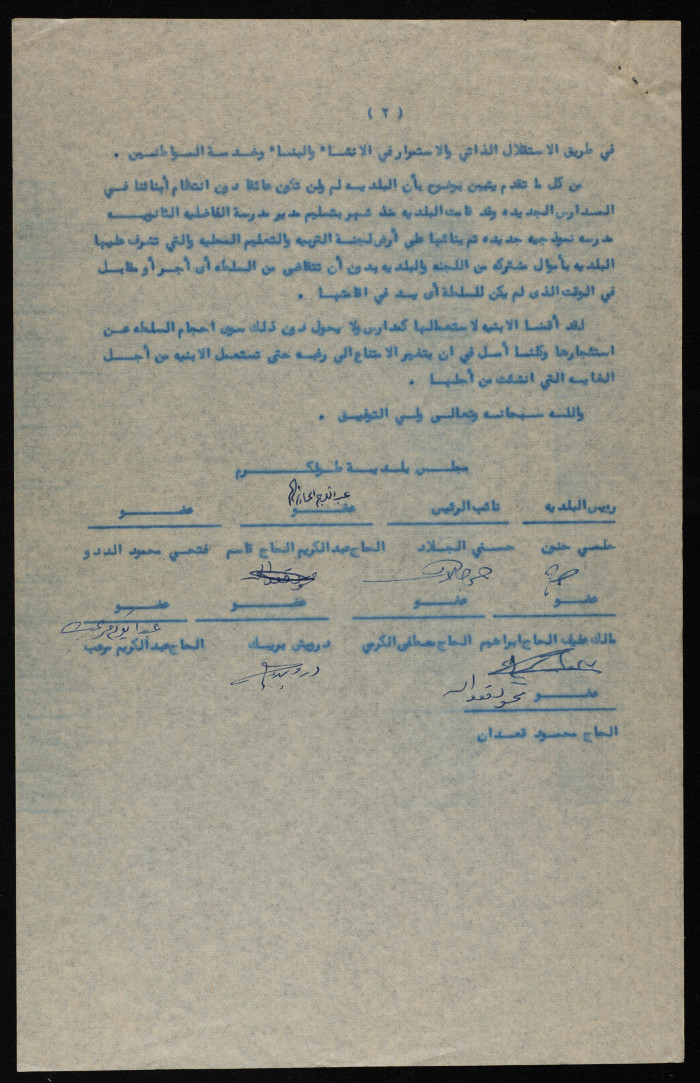 ( ٢ )
في طريق الاستقلال الذاتي والاستمرار في الانشاء والبناء وخدمة المواطنين .
من كل ما تقدم يتبين بوضوح بأن البلديه لم ولن تكون عائقا دون انتظام أبنائنا في
المدارس الجديده وقد قامت البلديه منذ شهر بتسليم مدير مدرسة الفاضليه الثانويه
مدرسه نموذجيه جديده تم بنائها على أرض لجنة التربيه والتعليم المحليه والتي تشرف عليها
البلديه بأموال مشتركه من اللجنه والبلديه بدون أن تتقاضى من السلطه أى أجر أو مقابل
في الوقت الذى لم يكن للسلطة أى يد في اقامتها .
لقد أقمنا الابنيه لاستعمالها كمدارس ولا يحول دون ذلك سوى احجام السلطه عن
استئجارها وكلنا أمل في ان يتغير الامتناع الى رغبه حتى تستعمل الابنيه من أجل
الغايه التي انشئت من أجلها .
والله سبحانه وتعالى ولي التوفيق .
مجلس بلدية طولكرم
رئيس البلديه نائب الرئيس عضو عضو
حلمي حنون حسني الجلاد الحاج عبدالكريم الحاج قاسم فتحي محمود الددو
عضو عضو عضو عضو
مالك عفيف الحاج ابراهيم الحاج مصطفى الكرمي درويش بريك الحاج عبدالكريم مرعب
عضو
الحاج محمود قعدان